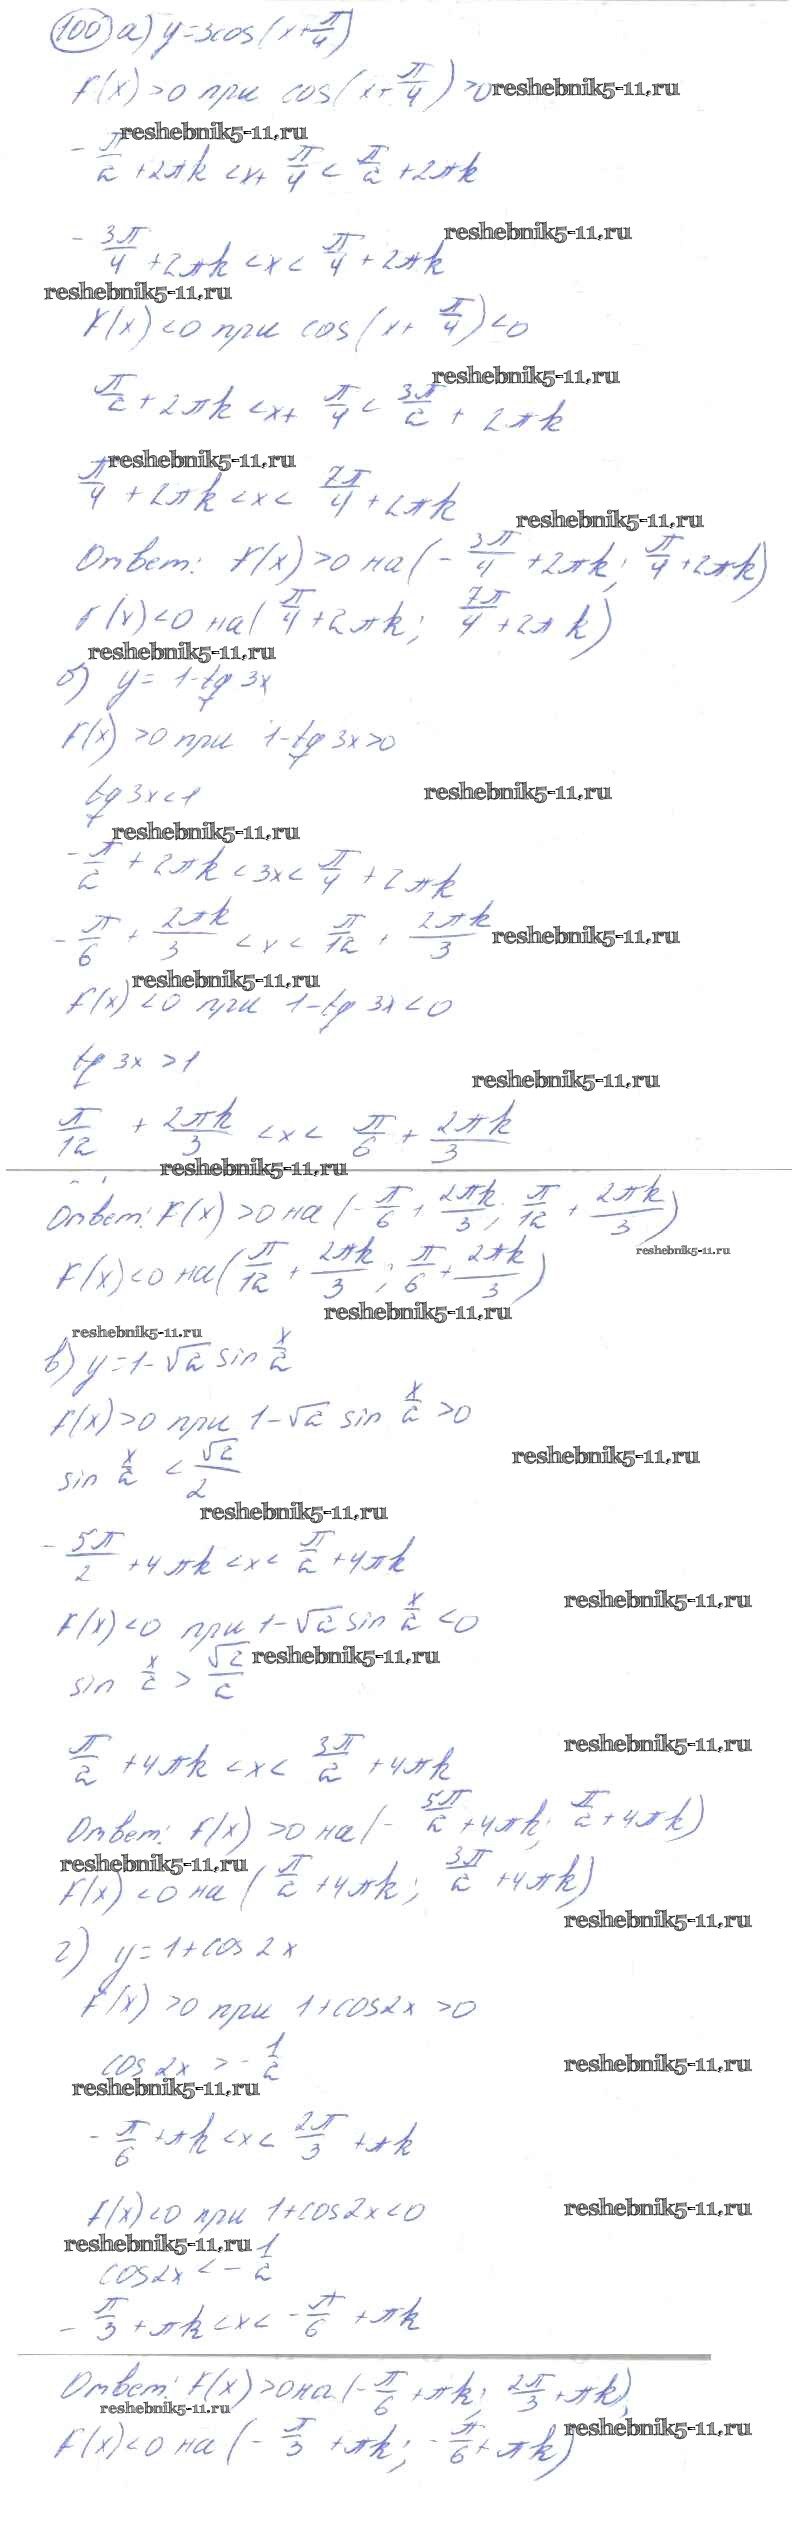 100 а) y=3cos(x+π/4)
f(x)>0 при cos(x+π/4)>0 reshebnik5-11.ru
reshebnik5-11.ru
-π/2+2πk<x+π/4<π/2+2πk
reshebnik5-11.ru
-3π/4+2πk<x<π/4+2πk
reshebnik5-11.ru
f(x)<0 при cos(x+π/4)<0
reshebnik5-11.ru
π/2+2πk<x+π/4<3π/2+2πk
reshebnik5-11.ru
π/4+2πk<x<7π/4+2πk
reshebnik5-11.ru
Ответ: f(x)>0 на (-3π/4+2πk; π/4+2πk)
f(x)<0 на (π/4+2πk; 7π/4+2πk)
reshebnik5-11.ru
б) y=1-tg3x
f(x)>0 при 1-tg3x>0
tg3x<1 reshebnik5-11.ru
reshebnik5-11.ru
-π/2+2πk<3x<π/4+2πk
-π/6+2πk/3<x<π/12+2πk/3 reshebnik5-11.ru
reshebnik5-11.ru
f(x)<0 при 1-tg3x<0
tg3x>1
reshebnik5-11.ru
π/12+2πk/3<x<π/6+2πk/3
reshebnik5-11.ru
Ответ: f(x)>0 на (-π/6+2πk/3; π/12+2πk/3)
reshebnik5-11.ru
f(x)<0 на (π/12+2πk/3; π/6+2πk/3)
reshebnik5-11.ru
reshebnik5-11.ru
в) y=1-√2 sin x/2
f(x)>0 при 1-√2 sin x/2>0
reshebnik5-11.ru
sin x/2<√2/2
reshebnik5-11.ru
-5π/2+4πk<x<π/2+4πk
reshebnik5-11.ru
f(x)<0 при 1-√2 sin x/2<0
reshebnik5-11.ru
sin x/2>√2/2
reshebnik5-11.ru
π/2+4πk<x<3π/2+4πk
Ответ: f(x)>0 на (-5π/2+4πk; π/2+4πk)
reshebnik5-11.ru
f(x)<0 на (π/2+4πk; 3π/2+4πk)
reshebnik5-11.ru
г) y=1+cos2x
f(x)>0 при 1+cos2x>0
cos2x>-1/2 reshebnik5-11.ru
reshebnik5-11.ru
-π/6+πk<x<2π/3+πk
f(x)<0 при 1+cos2x<0 reshebnik5-11.ru
reshebnik5-11.ru
cos2x<-1/2
-π/3+πk<x<-π/6+πk
Ответ: f(x)>0 на (-π/6+πk; 2π/3+πk),
reshebnik5-11.ru
reshebnik5-11.ru
f(x)<0 на (-π/3+πk; -π/6+πk)